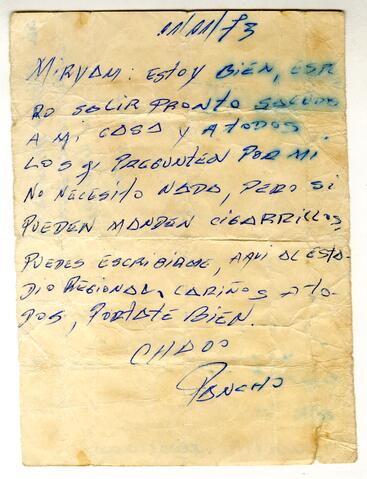 11/11/73
MIRYAM: ESTOY BIEN, ESPE
RO SALIR PRONTO SALUDOS
A MI CASA Y A TODOS
LOS Q' PREGUNTEN POR MI
NO NECESITO NADA, PERO SI
PUEDEN MANDEN CIGARRILLOS,
PUEDES ESCRIBIRME, AQUI AL ESTA-
DIO REGIONAL, CARIÑOS A TO-
DOS, PORTATE BIEN.
CHAOO
PANCHO